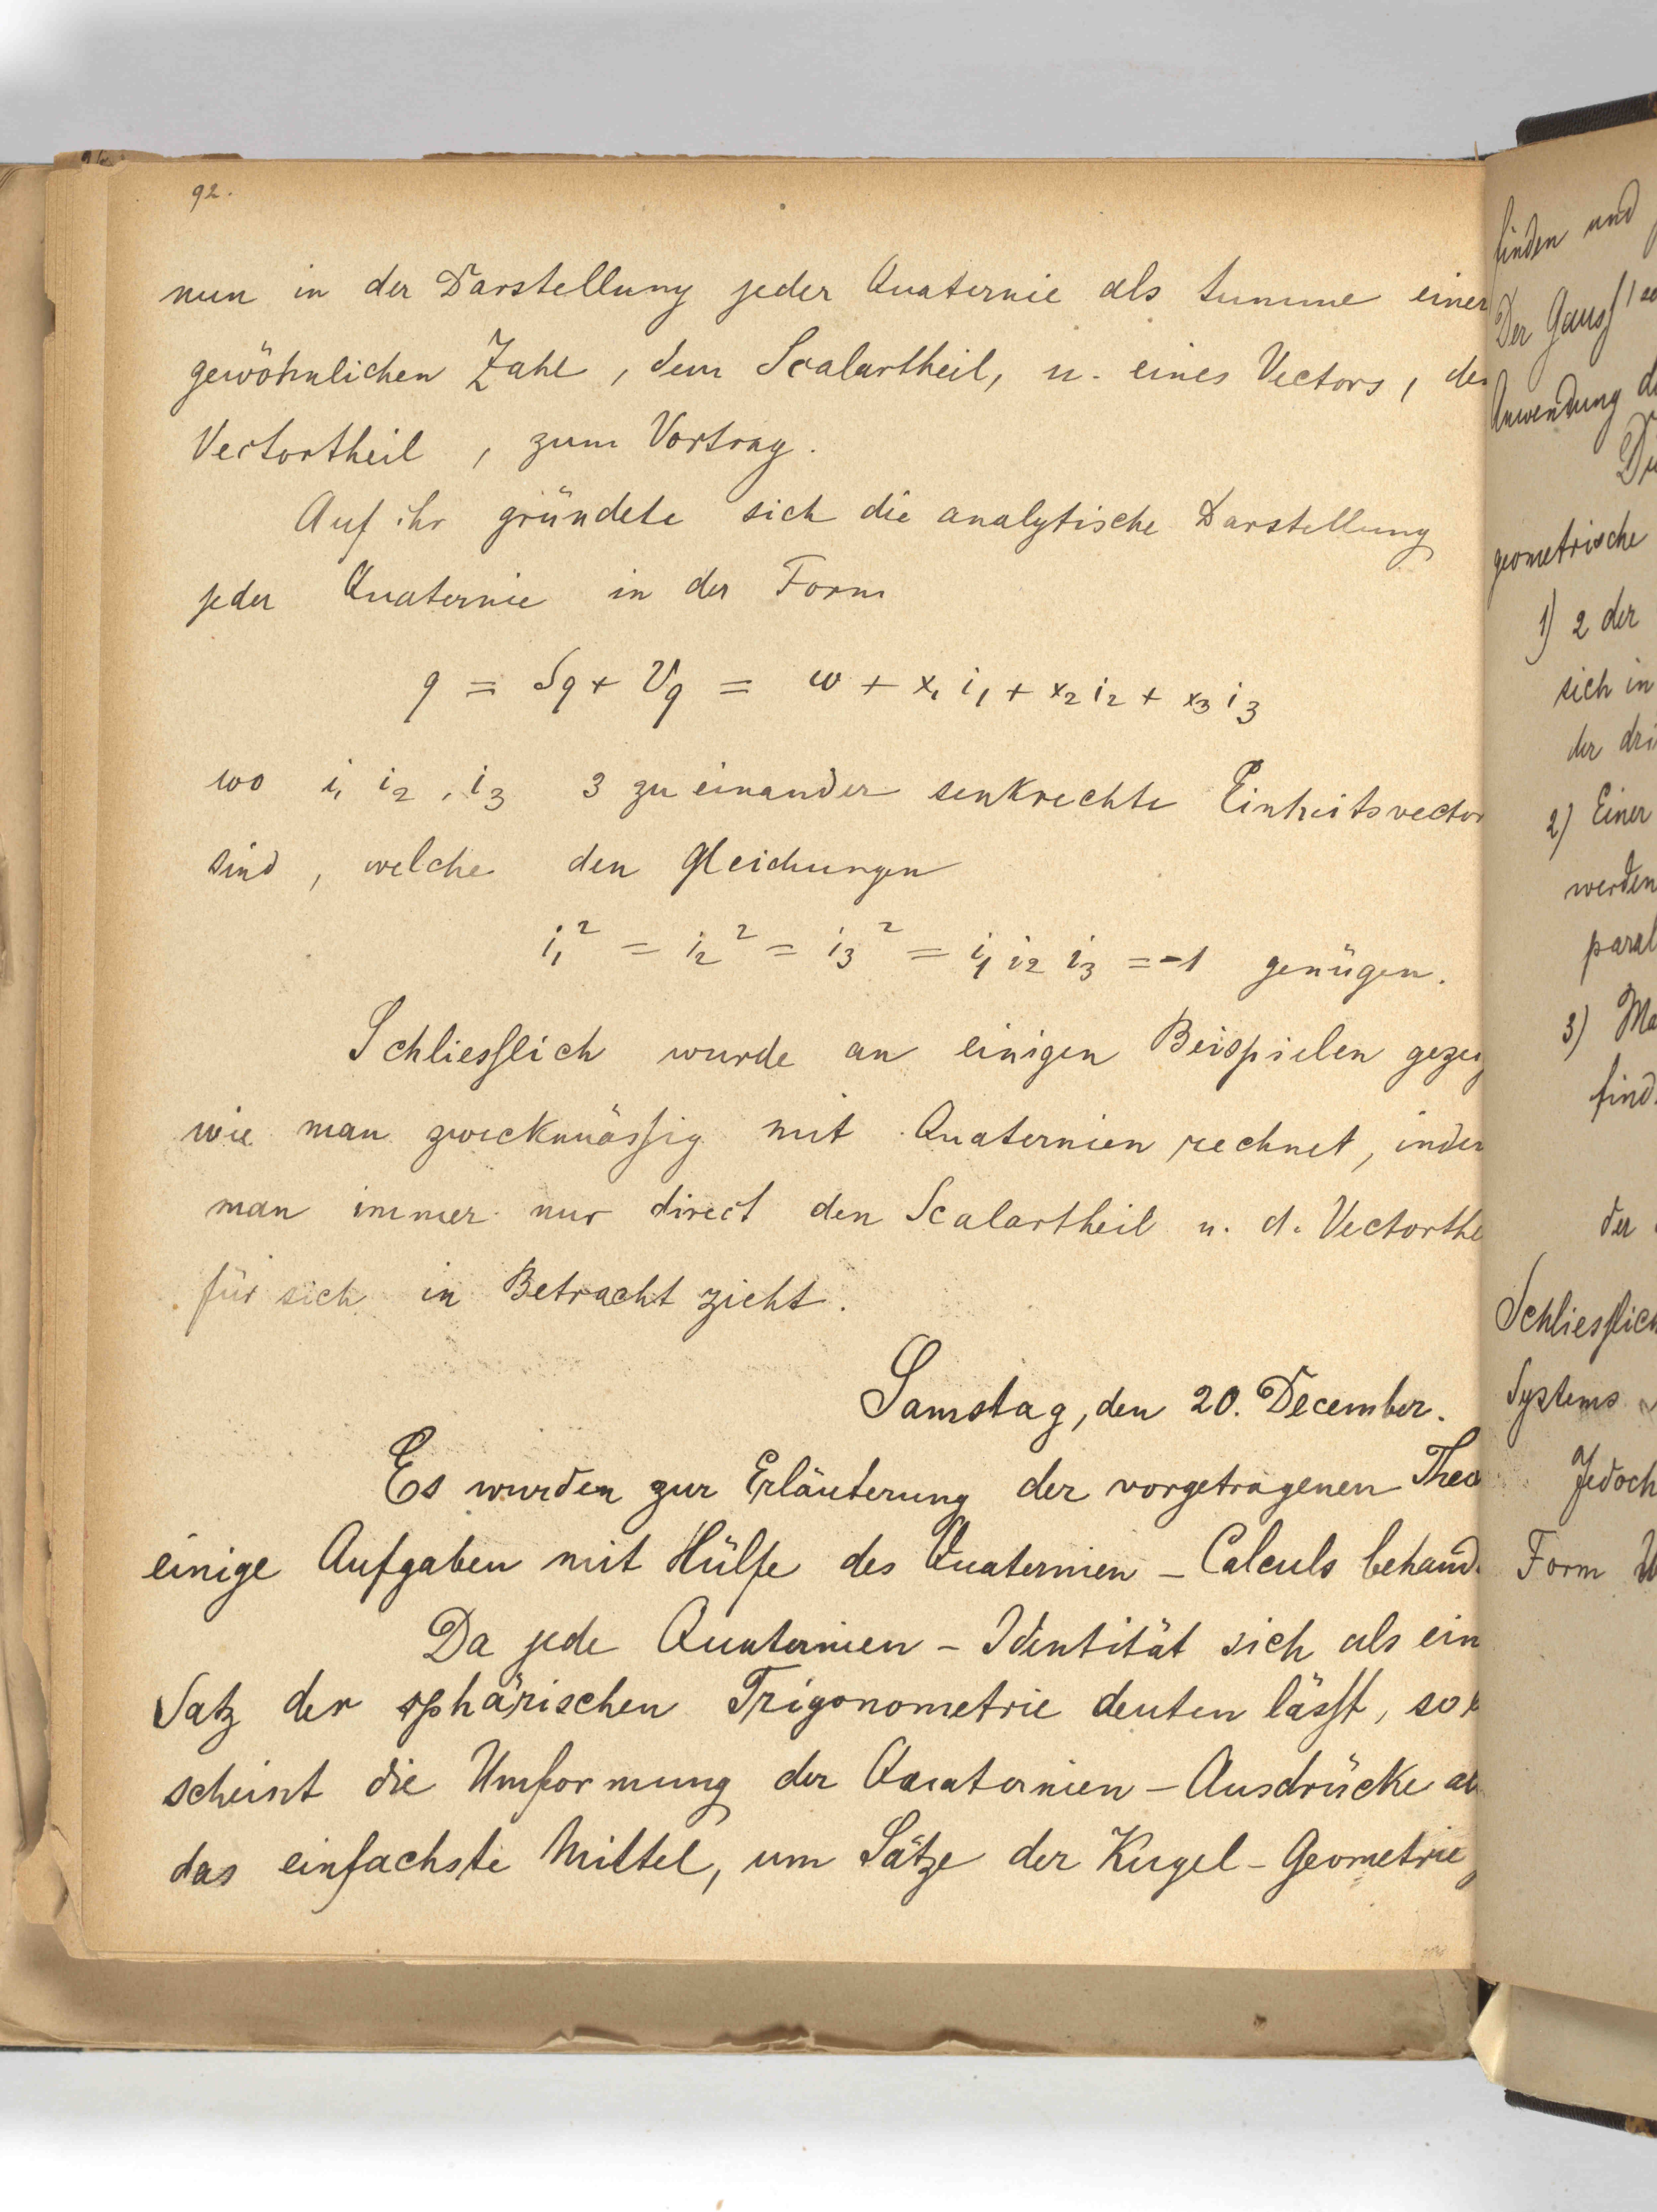 92.
nun in der Darstellung jeder Quaternie als Summe einer
gewöhnlichen Zahl, dem Scalartheil, u. eines Vectors, der
Vectortheil, zum Vortrag.
Auf ihr gründete sich die analytische Darstellung
jeder Quaternie in der Form
q = Sq + Vq = w + x₁ i₁ + x₂ i₂ + x₃ i₃
wo i₁ i₂, i₃ 3 zu einander senkrechte Einheitsvector
sind, welche den Gleichungen
i₁² = i₂² = i₃² = i₁ i₂ i₃ = -1 genügen.
Schliesslich wurde an einigen Beispielen gezeig
wie man zweckmässig mit Quaternien rechnet, indem
man immer nur direct den Scalartheil u. d. Vectorthe
für sich in Betracht zieht.
Samstag, den 20. December.
Es wurden zur Erläuterung der vorgetragenen Theo
einige Aufgaben mit Hülfe des Quaternien-Calculs behand
Da jede Quaternien-Identität sich als ein
Satz der sphärischen Trigonometrie deuten lässt, so
scheint die Umformung der Quaternien-Ausdrücke al
das einfachste Mittel, um Sätze der Kugel-Geometrie
finden und
Der Gauss
Anwendung d
geometrische
1) 2 der
sich in
der dri
2) Einer
werden
paral
3) Ma
find
der
Schliesslich
Systems
Jedoch
Form